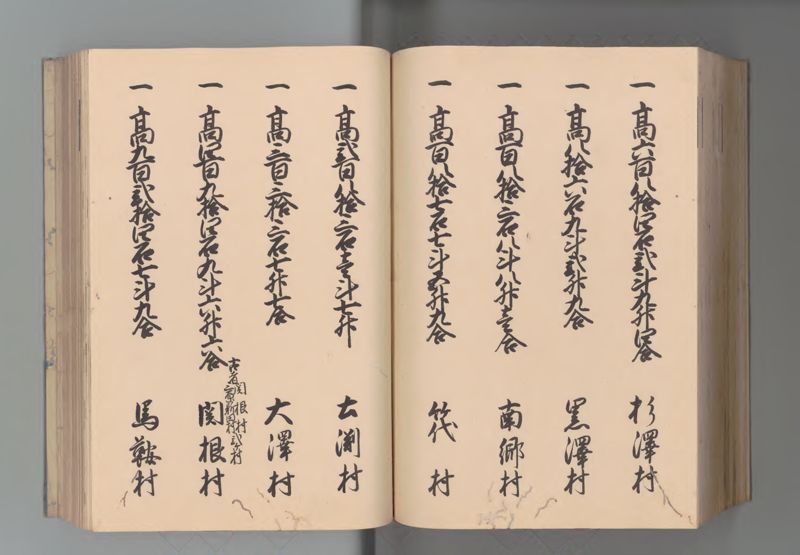 一 高六百八拾四石弐斗九升四合 杉澤村
一 高八拾六石九斗弐升九合 黒澤村
一 高百八拾三石八斗八升壱合 南郷村
一 高百八拾七石七斗五升九合 筏村
一 高弐百八拾三石壱斗七升 土渕村
一 高三百三拾三石七升七合 大澤村
一 高四百九拾四石九斗六升六合 関根村
古者関根村
弐ヶ村
一 高九百弐拾四石七斗九合 馬鞍村